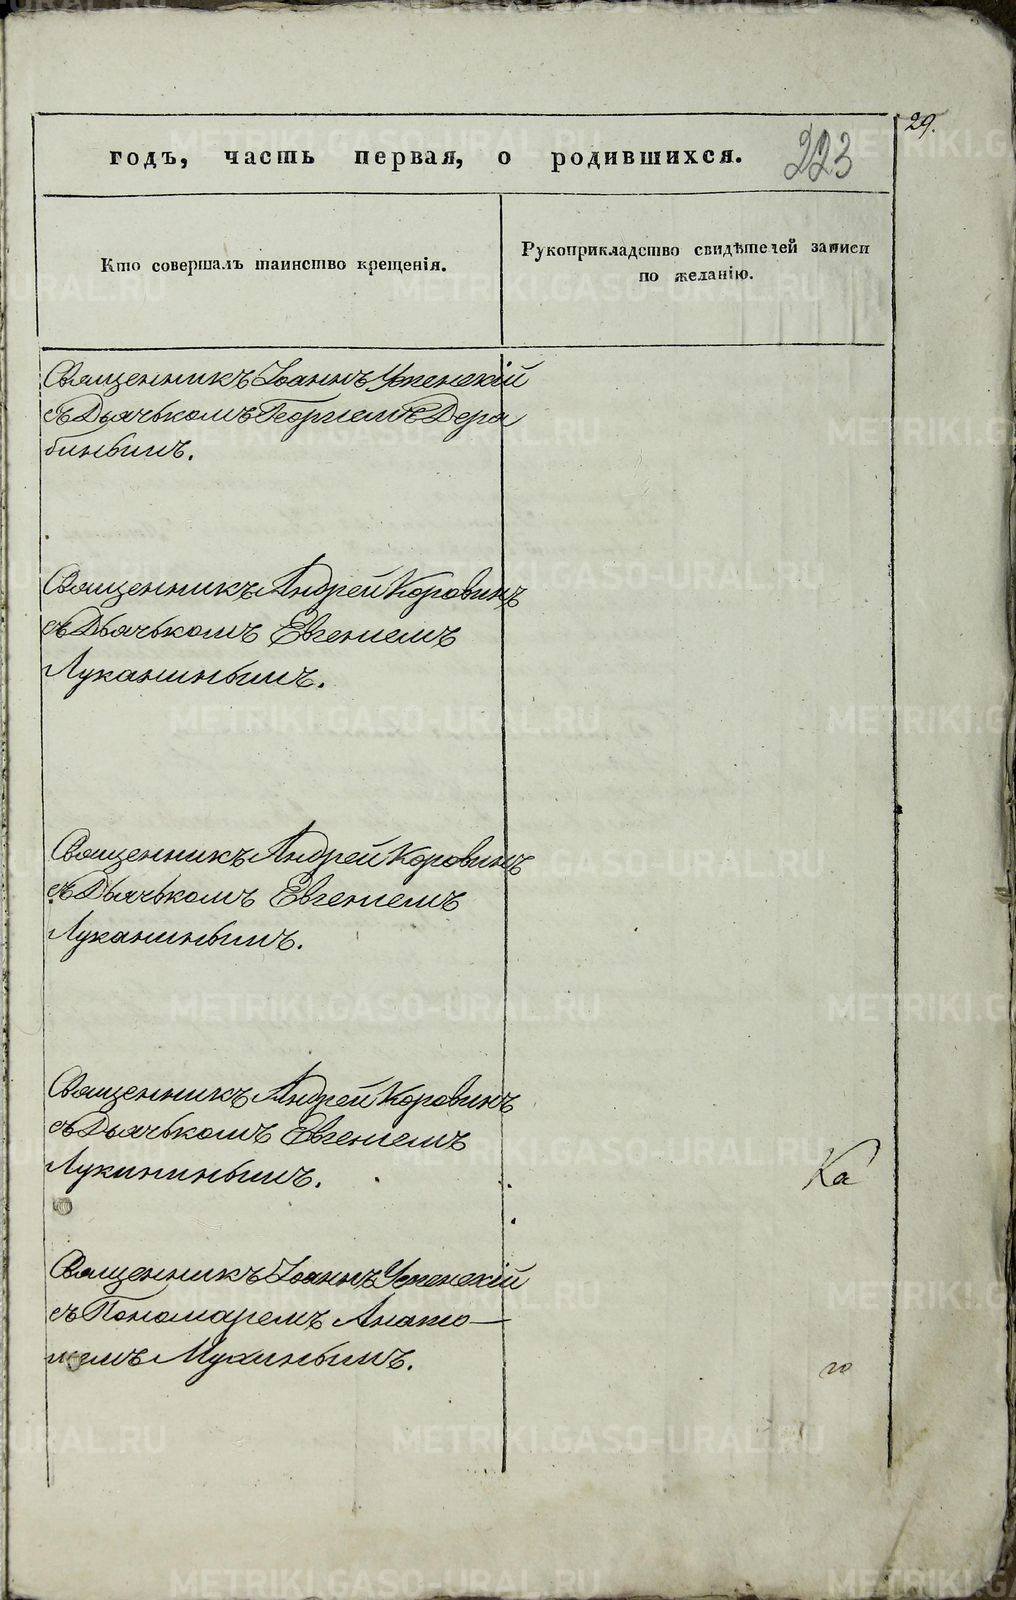 29.
годъ, часть первая, о родившихся. 223
Кто совершалъ таинство крещенія.
Рукоприкладство свидѣтелей записи
по желанію.
Священникъ Іоаннъ Успенскій
съ Дьячькомъ Георгіемъ Дера
бинымъ.
Священникъ Андрей Коровинъ
съ Дьячькомъ Евгеніемъ
Луканинымъ.
Священникъ Андрей Коровинъ
съ Дьячькомъ Евгеніемъ
Луканинымъ.
Священникъ Андрей Коровинъ
съ Дьячькомъ Евгеніемъ
Лукининымъ.
Ка
Священникъ Іоаннъ Успенскій
съ Пономаремъ Анато—
ліемъ Мухинымъ.
METRIKI.GASO-URAL.RU